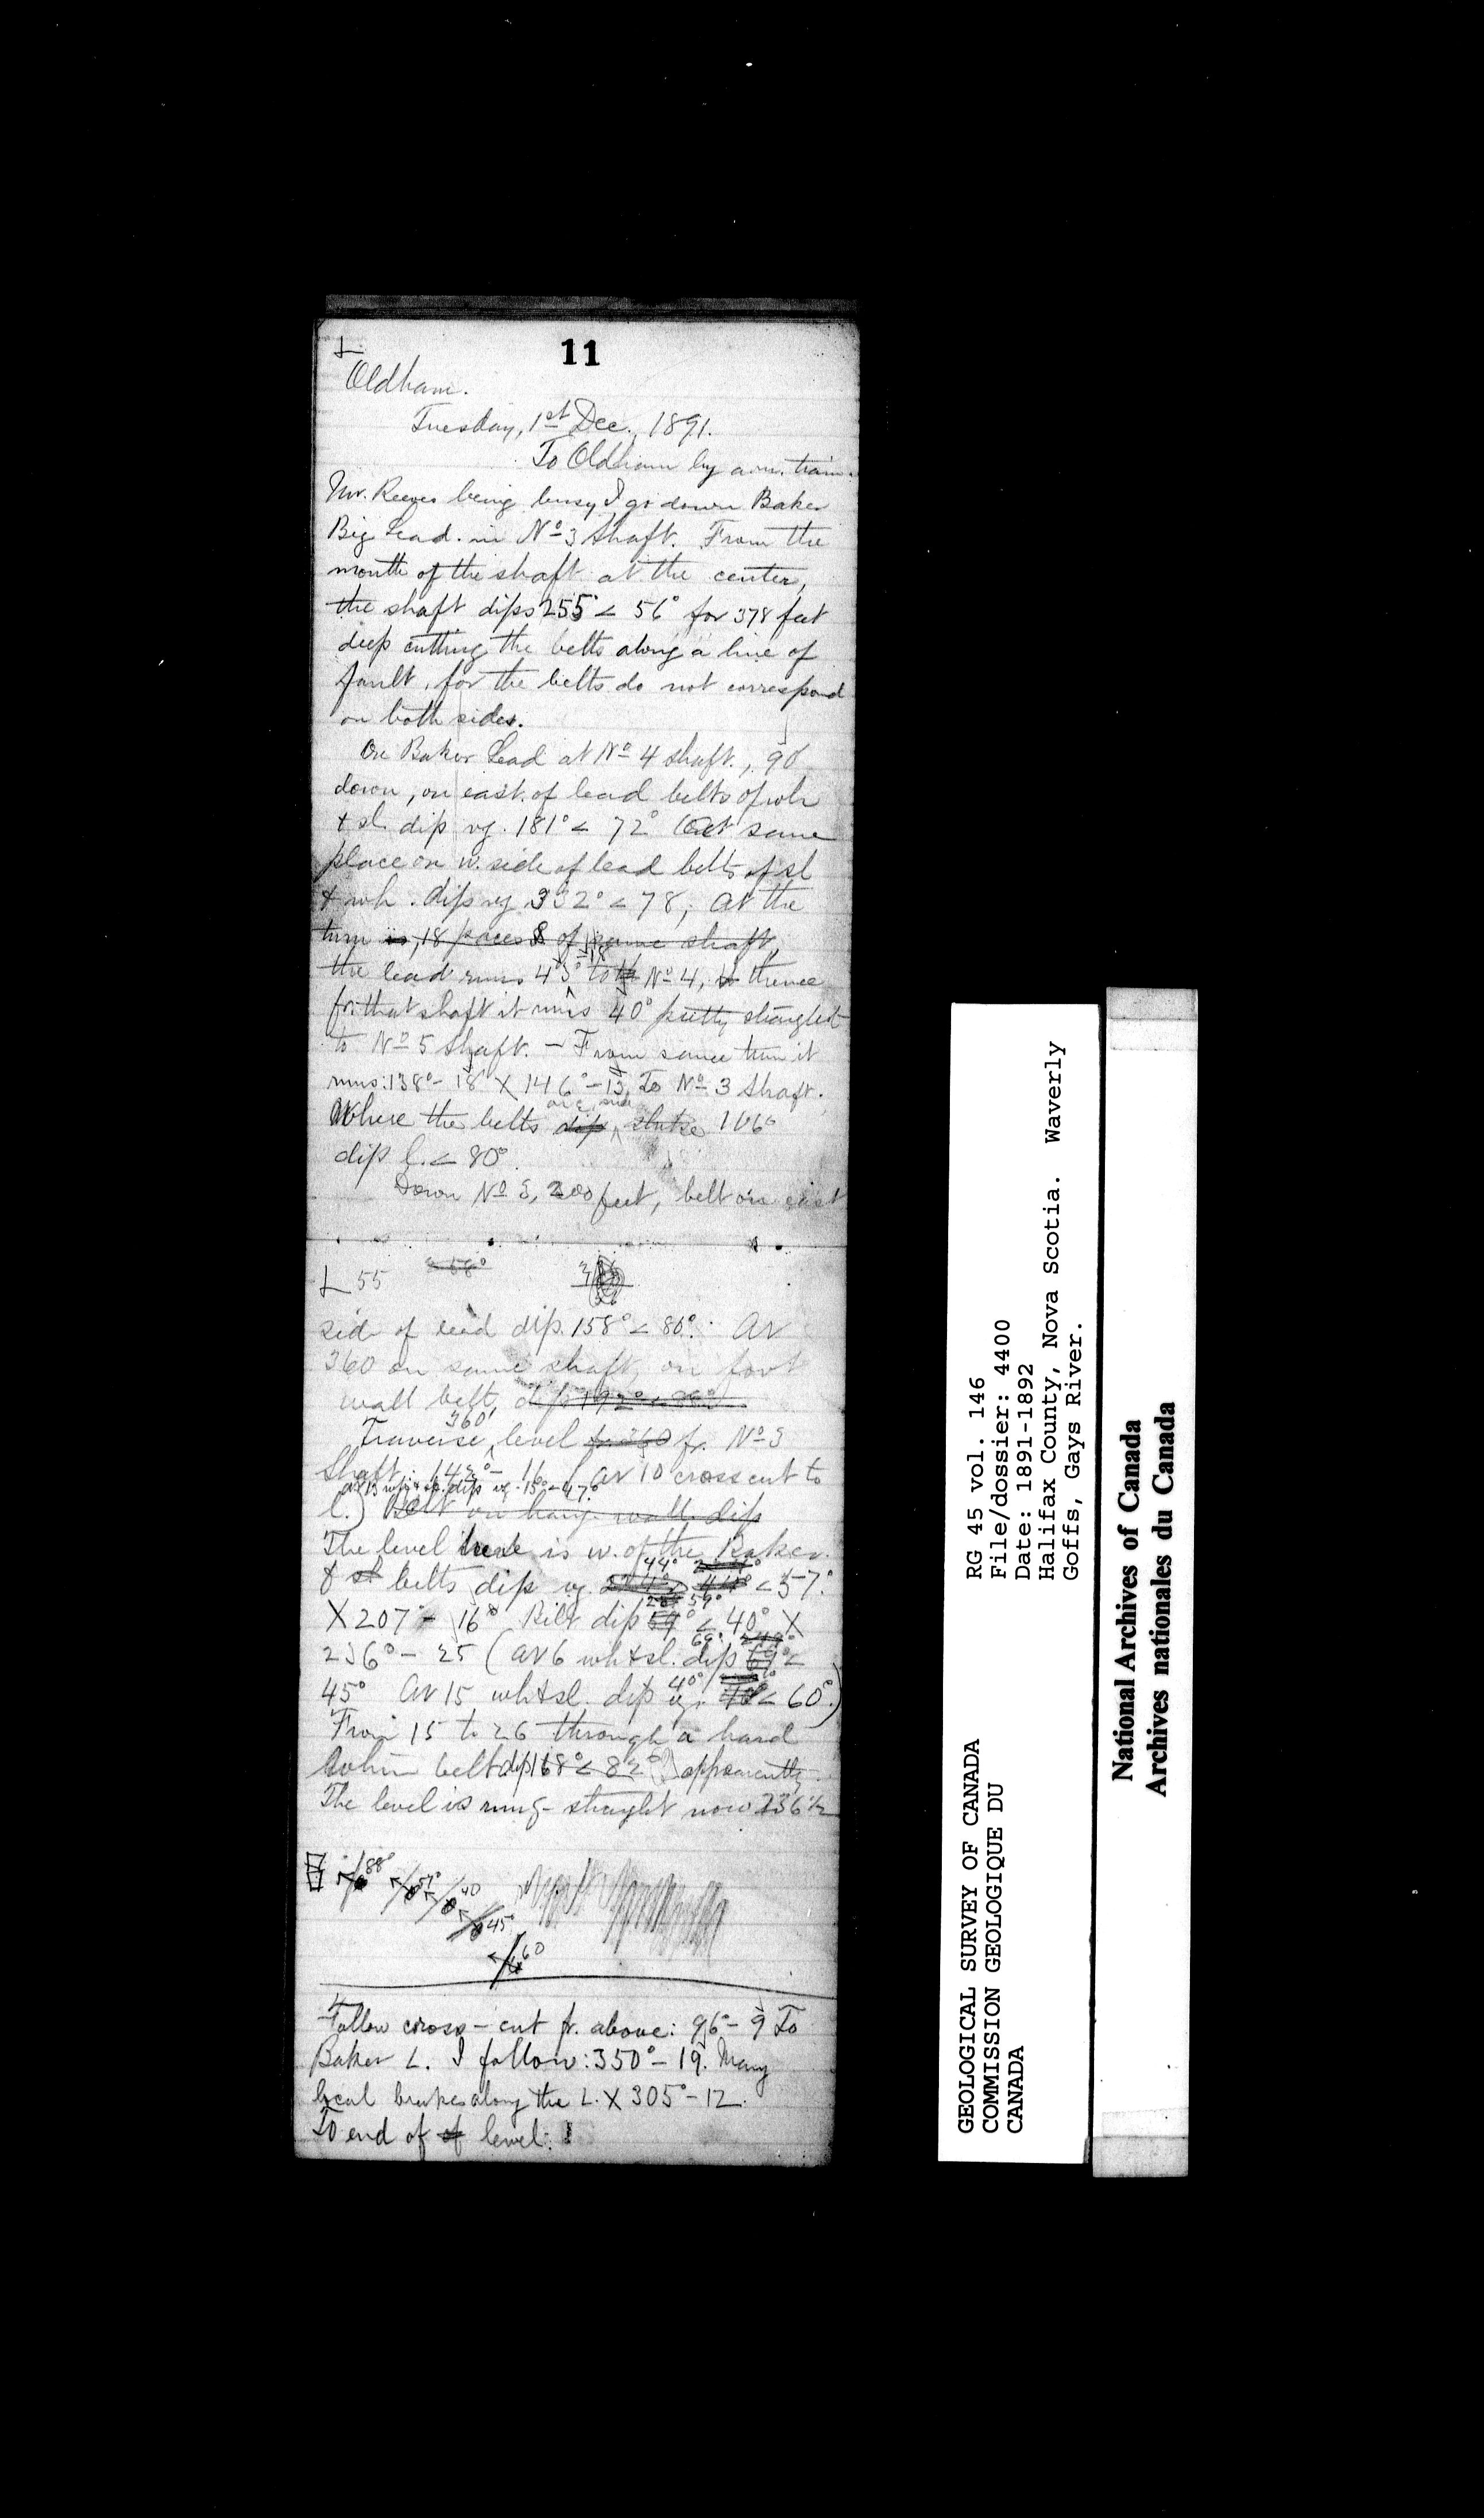 11
L
Oldham.
Tuesday, 1st Dec., 1891.
To Oldham by a.m. train.
Mr. Reeves being busy I go down Baker
Big Lead. in No 3 Shaft. From the
mouth of the shaft at the center,
the shaft dips 255° < 56° for 378 feet
deep cutting the belts along a line of
fault, for the belts do not correspond
on both sides.
On Baker Lead at No 4 shaft., 90'
down, on east. of lead belts of wh
& sl. dip vg. 181° < 72° (At same
place on w. side of lead belts of sl
& wh. dip vg 332° < 78; At the
turn is, 18 paces S of same shaft,
the lead runs 43° - 18 to No 4, thence
fr. that shaft it runs 40° pretty straight
to No 5 Shaft. - From same turn it
runs: 138° - 18 X 146° - 13, To No 3 Shaft.
Where the belts dip on E. side strike 106°
dip l. < 80°.
Down No 3, 200 feet, belt on east
L 55
side of lead dip. 158° < 80°. At
360 on same shaft, on foot
wall belt, dip 192°
Traverse 360' level fr. 360 fr. No 3
Shaft: - 16 (At 10 cross cut to
At 13 wh & sl. dip vg. < 47°
l.) Belt on hang. wall dip
The level here is w. of the Baker.
& sl belts dip vg. 44° < 57°.
X 207° - 16° Belt dip 59° < 40° X
236° - 25 (At 6 wh & sl. dip 69° <
45° At 15 wh & sl. dip vg. 40° < 60°.)
From 15 to 26 through a hard
whin belt dip 168° < 82° (?) apparently
The level is rung straight now 236 1/2
88° 57° 40 45° 60
Follow cross-cut fr. above: 96° - 9 To
Baker L. I follow: 350° - 19. Many
local brakes along the L. X 305° - 12.
To end of of level.
GEOLOGICAL SURVEY OF CANADA
COMMISSION GEOLOGIQUE DU
CANADA
RG 45 vol. 146
File/dossier: 4400
Date: 1891-1892
Halifax County, Nova Scotia. Waverly
Goffs, Gays River.
National Archives of Canada
Archives nationales du Canada